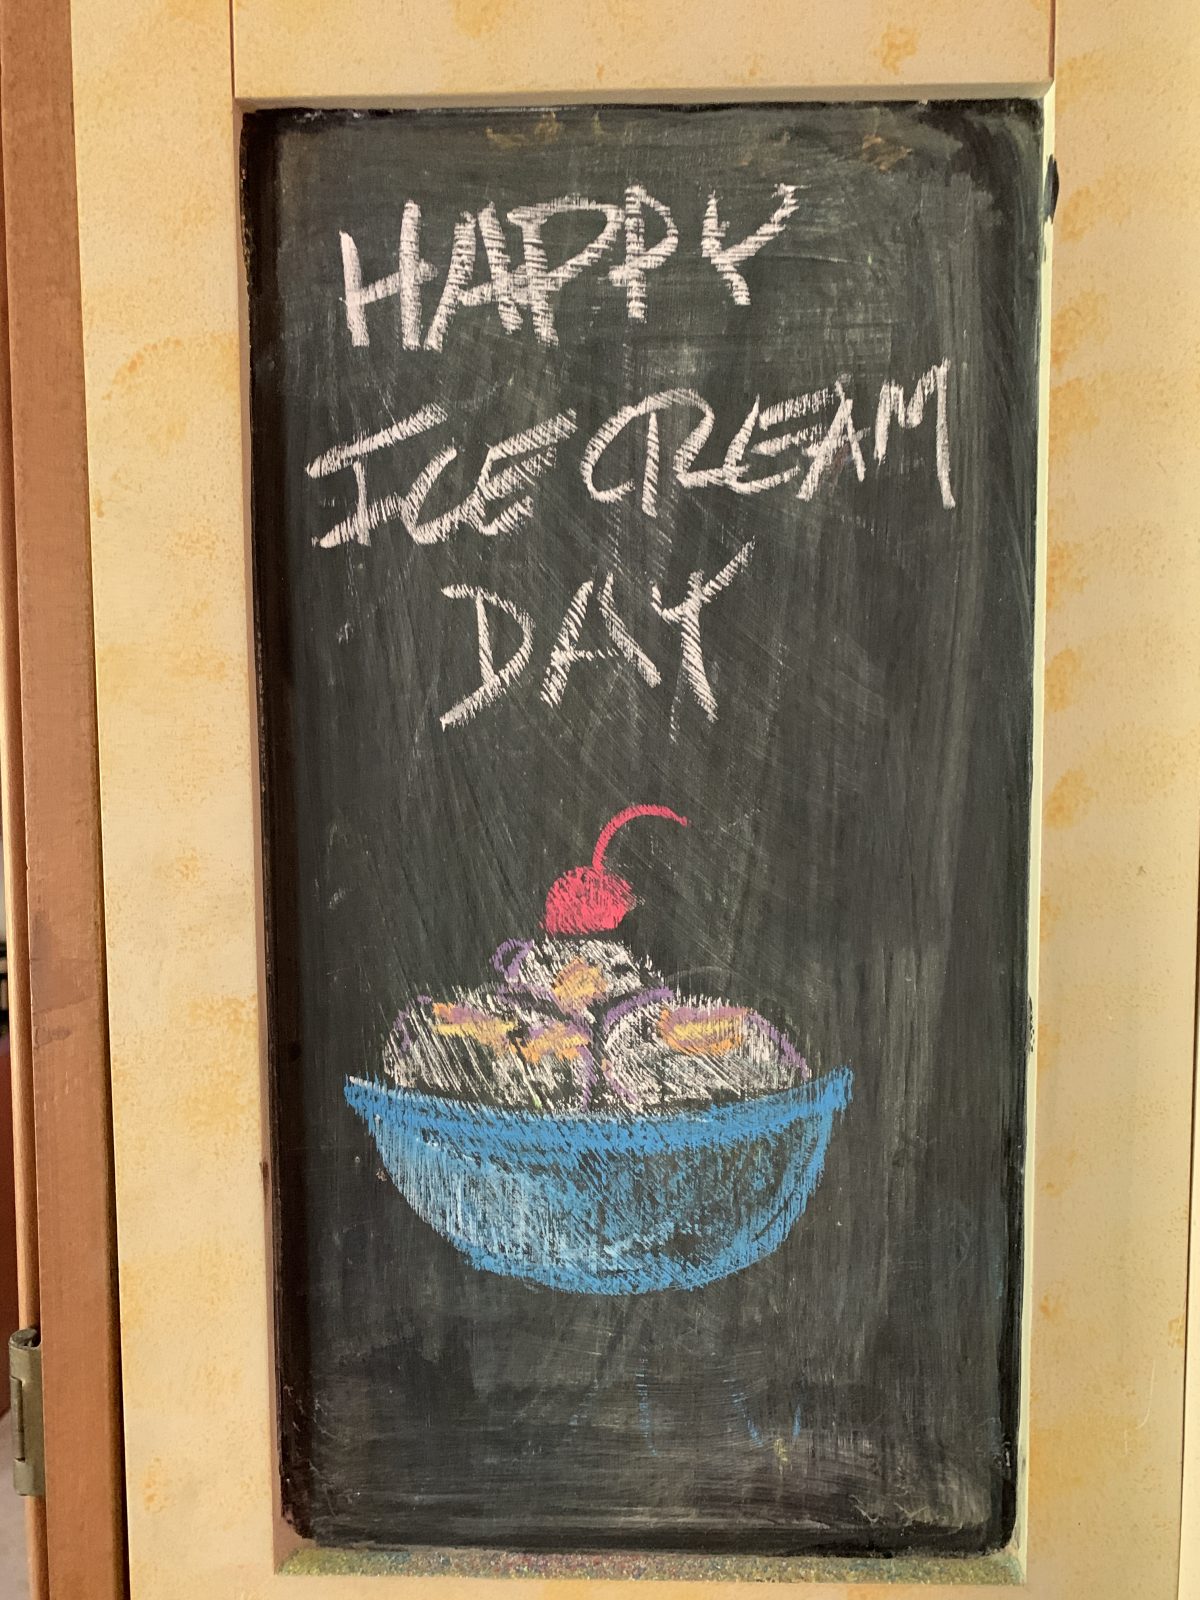 HAPPY
ICE CREAM
DAY